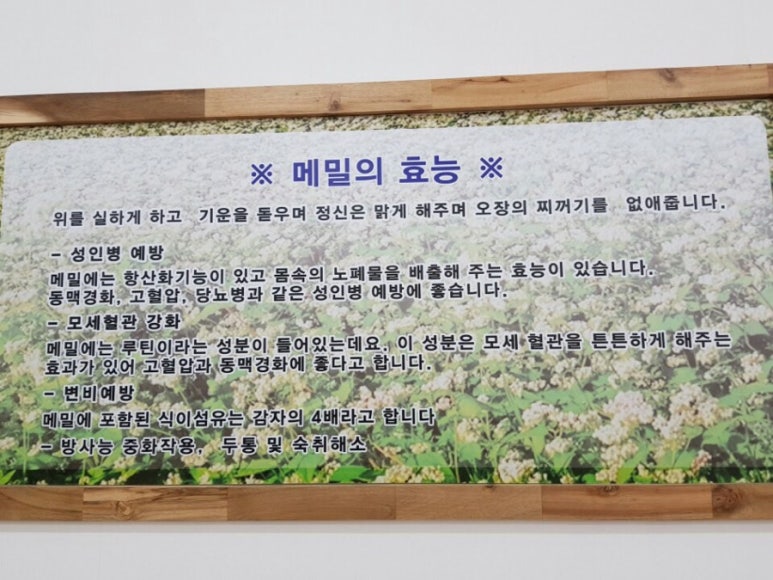 ※ 메밀의 효능 ※
위를 실하게 하고 기운을 돋우며 정신은 맑게 해주며 오장의 찌꺼기를 없애줍니다.
- 성인병 예방
메밀에는 항산화기능이 있고 몸속의 노폐물을 배출해 주는 효능이 있습니다.
동맥경화, 고혈압, 당뇨병과 같은 성인병 예방에 좋습니다.
- 모세혈관 강화
메밀에는 루틴이라는 성분이 들어있는데요, 이 성분은 모세 혈관을 튼튼하게 해주는
효과가 있어 고혈압과 동맥경화에 좋다고 합니다.
- 변비예방
메밀에 포함된 식이섬유는 감자의 4배라고 합니다
- 방사능 중화작용, 두통 및 숙취해소